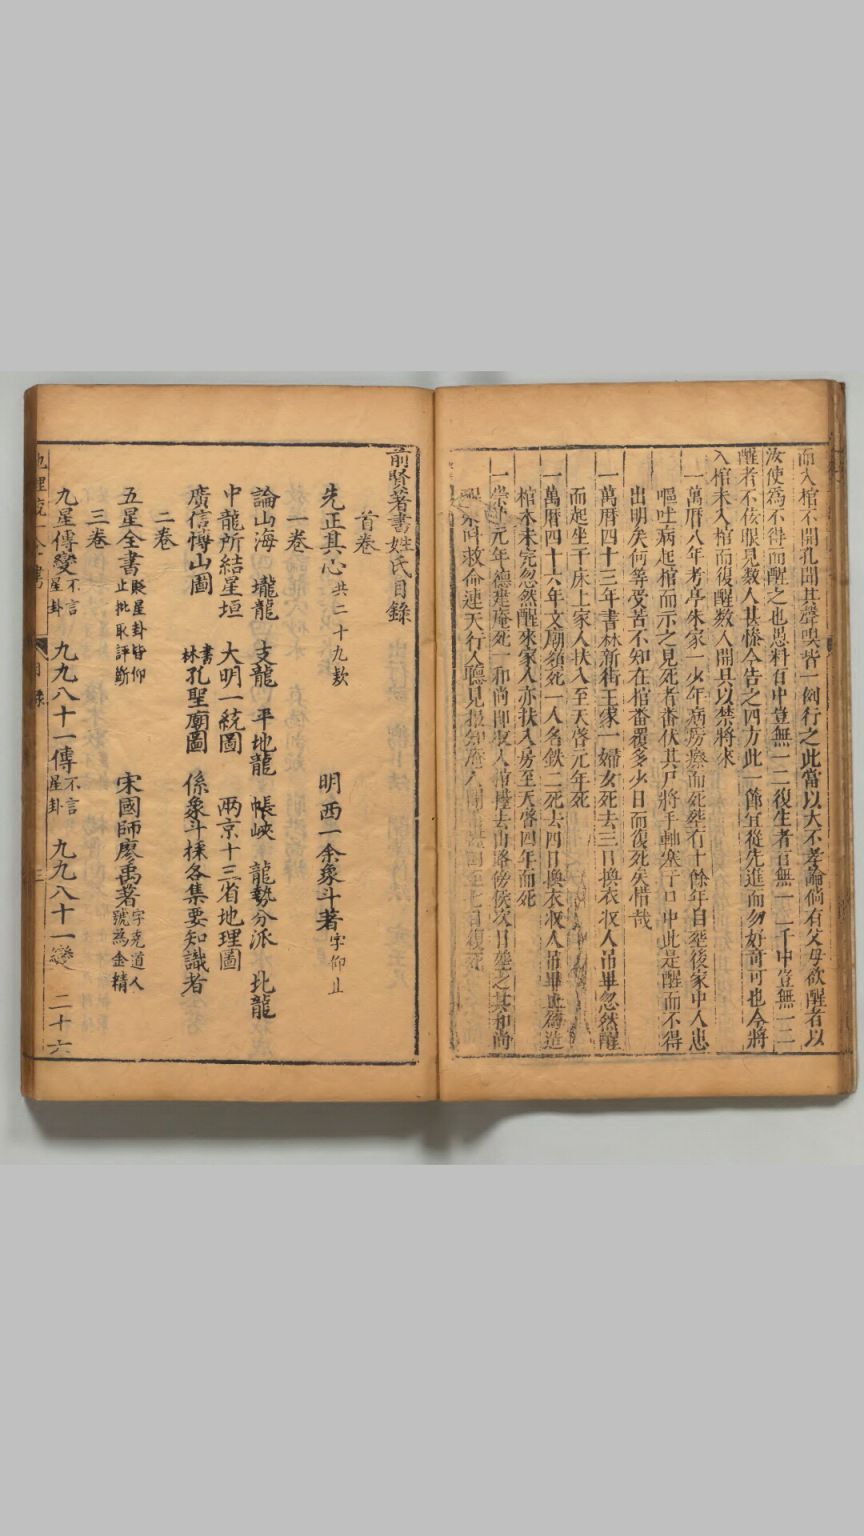 而入棺不開孔聞其聲嗅皆一例行之此當以大不孝論倘有父母欲醒者以
汝使為不得而醒之也愚料百中豈無一二復生者言無一二千中豈無一二
醒者不佞眼見数人甚慘今告之四方此一節宜從先進而勿好奇可也今將
入棺未入棺而復醒数人開具以禁將來
一萬曆八年考亭朱家一少年病癆瘵而死塟有十餘年自塟後家中人患
嘔吐病起棺而示之見死者番伏其尸將手軸塞于口中此是醒而不得
出明矣何等受苦不知在棺番覆多少日而復死矣惜哉
一萬曆四十三年書林新街王家一婦女死去三日換衣收人吊畢忽然醒
而起坐于床上家人扶入至天啓元年死
一萬曆四十六年文廟須死一人名鉄二死去四日換衣收人吊畢重儔造
棺木未完忽然醒來家人亦扶入房至天啓四年而死
一崇 元年德建庵死一和尚即收人 擡去山路傍侯次日塟之其和尚
叫救命連天行人聽見報知庵人 七日復死
前賢著書姓氏目錄
首卷
先正其心 共二十九欵 明 西一余象斗著 字仰止
一卷
論山海 壠龍 支龍 平地龍 帳峽 龍勢分派 北龍
中龍所結星垣 大明一統圖 兩京十三省地理圖
廣信慱山圖 書林孔聖廟圖 係象斗採各集要知識者
二卷
五星全書 貶星卦皆仰止批取評斷 宋國師廖禹著 字堯道人號為金精
三卷
九星傳變 不言星卦 九九八十一傳 不言星卦 九九八十一變 二十六
目錄
三